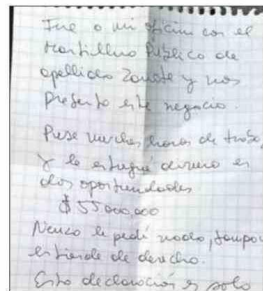 Fue a mi oficina con el
Martillero Público de
apellido Zarate y nos
presento este negocio.
Puse muchas horas de trabajo,
y le entregué dinero en
dos oportunidades
$ 55.000.000
Nunca le pedi nada, tampoco
entiende de derecho.
Esta declaración es solo